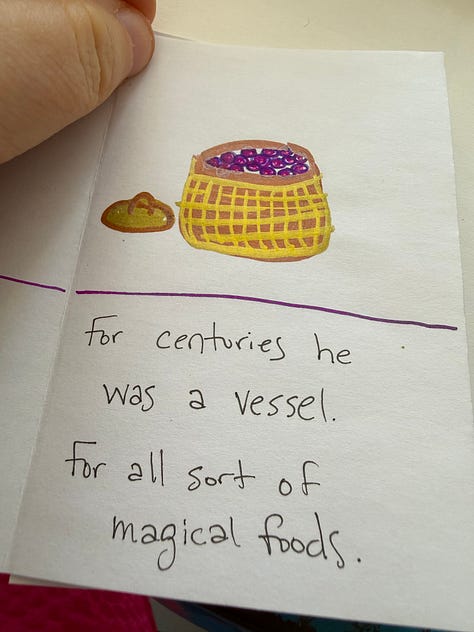 For centuries he
was a vessel.
For all sort of
magical foods.